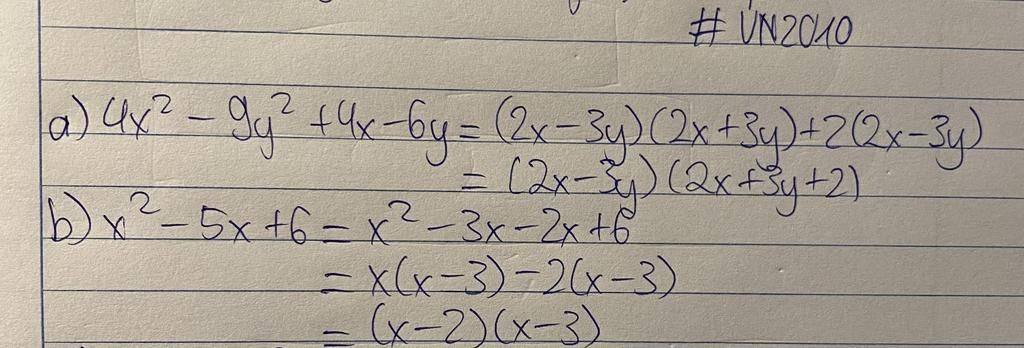 # VN2010
a) 4x² - 9y² + 4x - 6y = (2x - 3y)(2x + 3y) + 2(2x - 3y)
= (2x - 3y)(2x + 3y + 2)
b) x² - 5x + 6 = x² - 3x - 2x + 6
= x(x - 3) - 2(x - 3)
= (x - 2)(x - 3)